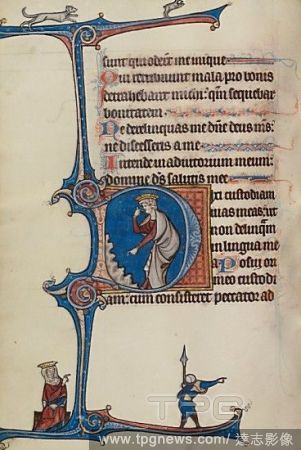 sunt qui oderūt me inique.
Qui retribuunt mala pro bonis
detrahebant michi: qm̄ sequebar
bonitatem.
Ne derelinquas me dn̄e deus ms̄:
ne discesseris a me.
Intende in adiutorium meum:
domine ds̄ salutis mee.
Dixi custodiam
uias meas: ut
non delinqm̄
in lingua me
a Posui ori
meo custodi
am: cum consisteret peccator ad
TPG
www.tpgnews.com / 達志影像